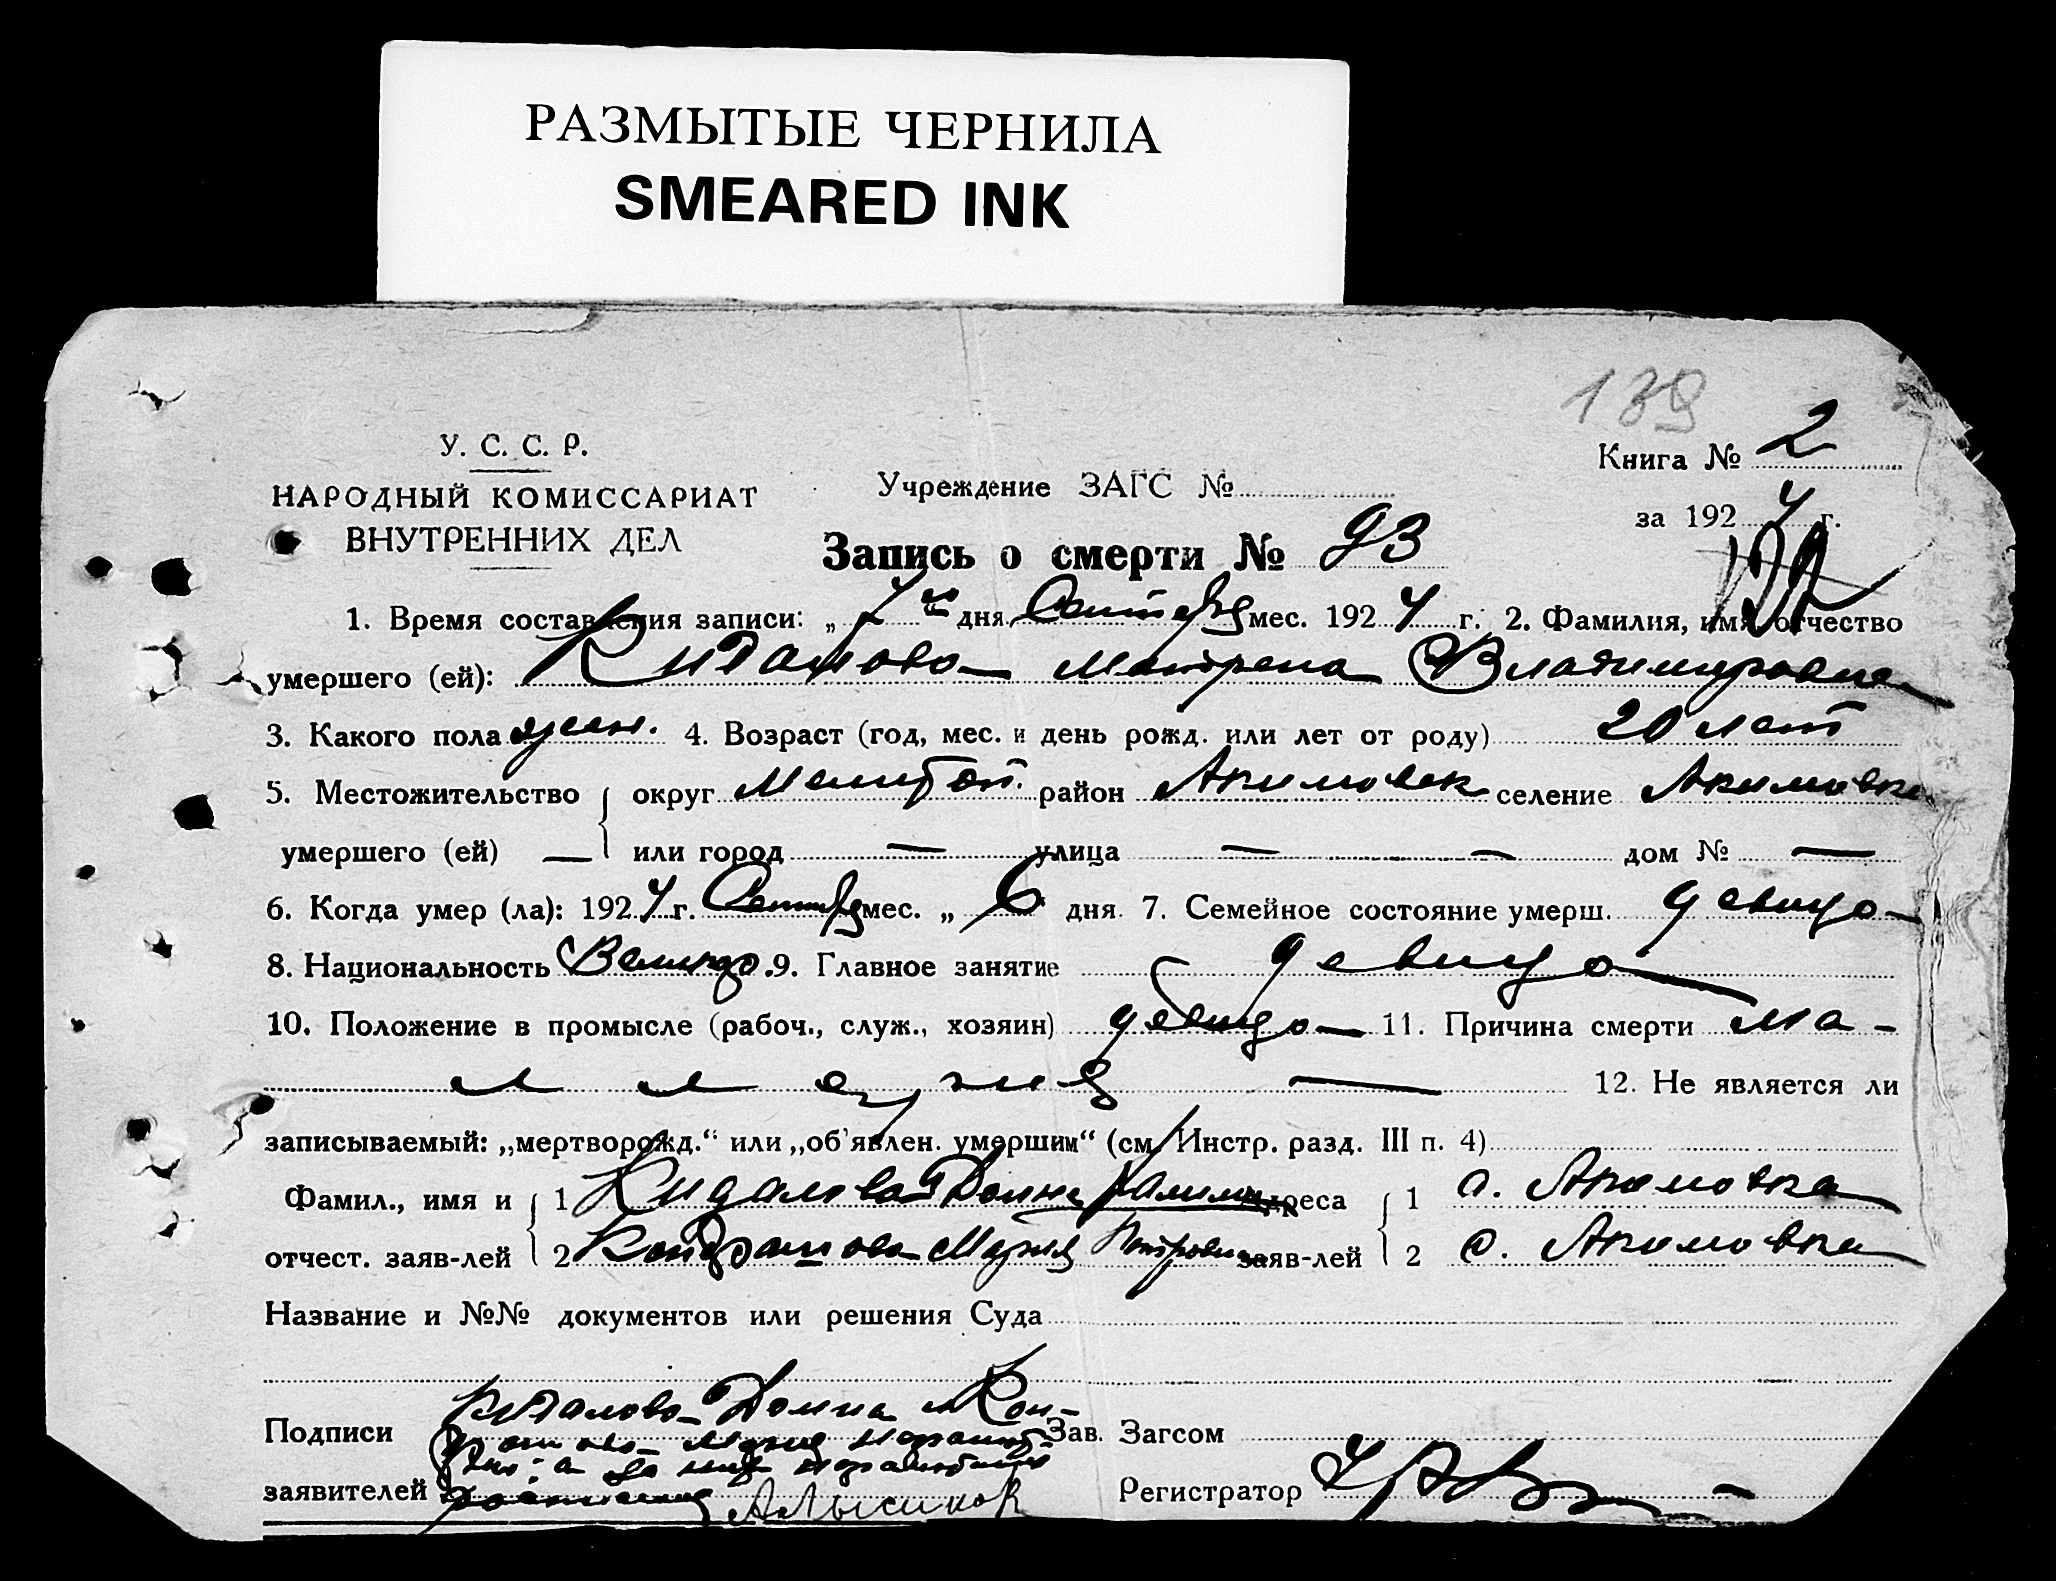 РАЗМЫТЫЕ ЧЕРНИЛА
SMEARED INK
139
У. С. С. Р.
НАРОДНЫЙ КОМИССАРИАТ
ВНУТРЕННИХ ДЕЛ
Учреждение ЗАГС №
Книга № 2
за 1924 г.
Запись о смерти № 93
1. Время составления записи: „ 7 го дня Сентября мес. 1924 г. 2. Фамилия, имя, отчество
умершего (ей): Кидалова Матрена Владимировна
3. Какого пола жен. 4. Возраст (год, мес. и день рожд. или лет от роду) 20 лет
5. Местожительство округ Мелитоп. район Акимовск селение Акимовка
умершего (ей) — или город — улица — — дом № —
6. Когда умер (ла): 1924 г. Сентября мес. „ 6 дня. 7. Семейное состояние умерш. девица
8. Национальность Великор. 9. Главное занятие девица
10. Положение в промысле (рабоч., служ., хозяин) девица 11. Причина смерти ма-
лярия — 12. Не является ли
записываемый: „мертворожд.“ или „об'явлен. умершим“ (см. Инстр. разд. III п. 4)
Фамил., имя и 1 Кидалова Домна адреса 1 с. Акимовка
отчест. заяв-лей 2 Кондрашова Мария Петровна заяв-лей 2 с. Акимовка
Название и №№ документов или решения Суда
Кидалова Домна и Кон-
Подписи драшова Мария неграмот- Зав. Загсом
ны: а за них неграмотных
заявителей расписался А Лысиков Регистратор